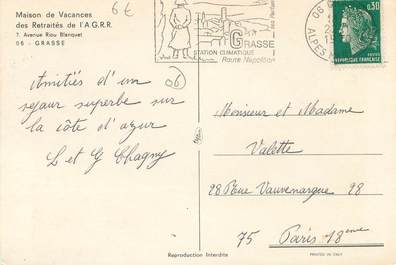 Maison de Vacances
des Retraités de l'A.G.R.R.
7, Avenue Riou Blanquet
06 - GRASSE
6€
06
Amitiés d'un
sejour superbe sur
la côte d'azur
L et G Chagny
GRASSE
STATION CLIMATIQUE
Route Napoléon
ses Parfums
06
ALPES
0,30
Monsieur et Madame
Valette
28 Rue Vauvenargue 28
75 Paris 18eme
Reproduction Interdite
PRINTED IN ITALY